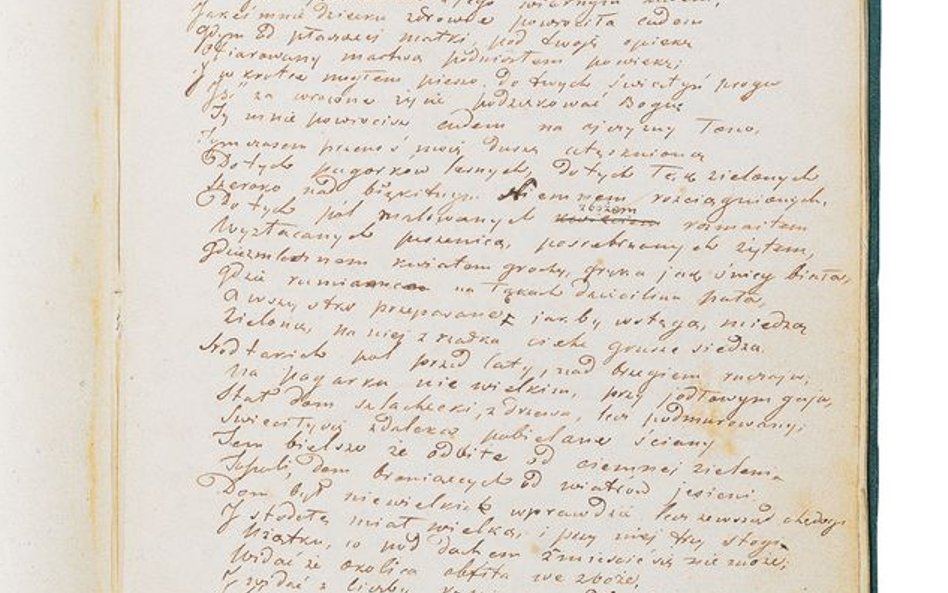 z jego wiernym ludem,
Jakeś mnie dziecko zdrowie powróciła cudem
Gdym od płaczącej matki pod Twoję opiekę
Ofiarowany martwą podniosłem powiekę;
I w krotce mogłem pieszo do twych świątyń progu
Iść za wrocone życie podziękować Bogu
Ty mnie powrocisz cudem na ojczyzny łono,
Tymczasem przenoś moją duszę utęsknioną
Do tych pagorków leśnych, do tych łąk zielonych
Szeroko nad błękitnym Niemnem rozciągnionych,
Do tych pól malowanych zbożem rozmaitem
Wyzłacanych pszenicą, posrebrzanych żytem,
kwiatem grochy, gryka jak śnieg biała,
Gdzie na łąkach dzięcielina pała,
A wszystko przepasane jak by wstęgą, miedzą
Zieloną, na niej z rzadka ciche grusze siedzą.
Środ takich pol przed laty, nad brzegiem ruczaju,
Na pagorku niewielkim, przy jodłowym gaju,
Stał dom szlachecki, z drzewa, lecz podmurowany;
Swieciły się zdaleka pobielane ściany
Tem bielsze że odbite od ciemnej zieleni
Topoli, dom broniących od wiatrów jesieni.
Dom był niewielki wprawdzie lecz zewsząd chędogi
I stodołę miał wielką, i przy niej trzy stogi
Użątku, co pod dachem zmieścić się nie może;
Widać że okolica obfita we zboże,
I widać z liczby